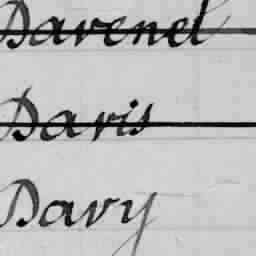 Davenel
Davis
Davy